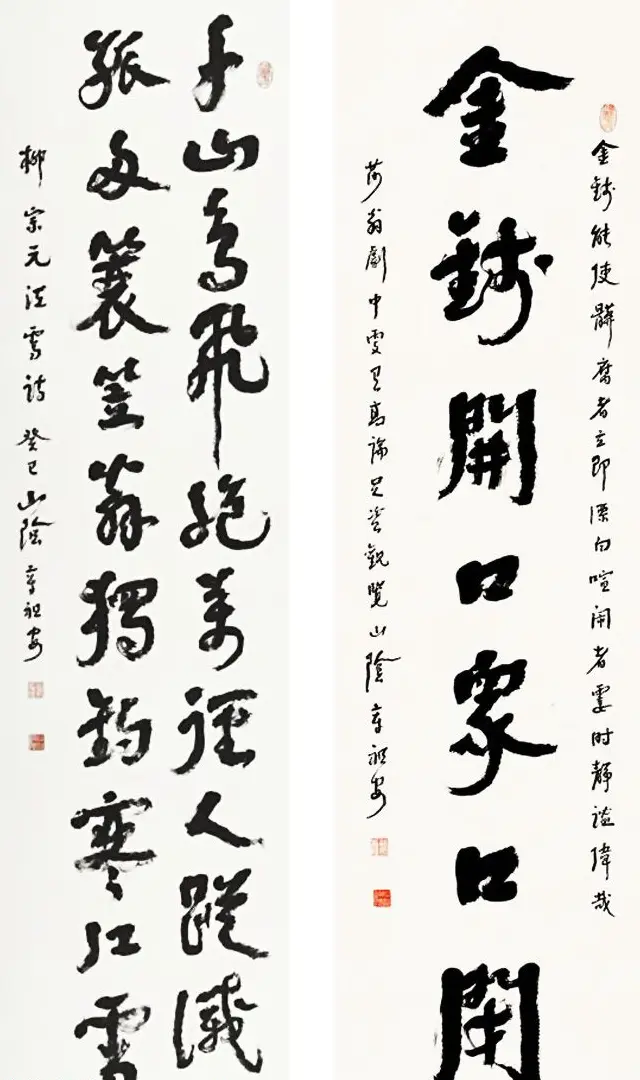 金錢能使髒腐者立即漂白喧鬧者霎时靜謐偉哉
金錢開口眾口閉
莎翁劇中更有高論足資觀覽山陰章祖安
千山鳥飛絕萬徑人蹤滅
孤舟簑笠翁獨釣寒江雪
柳宗元江雪詩癸巳山陰章祖安